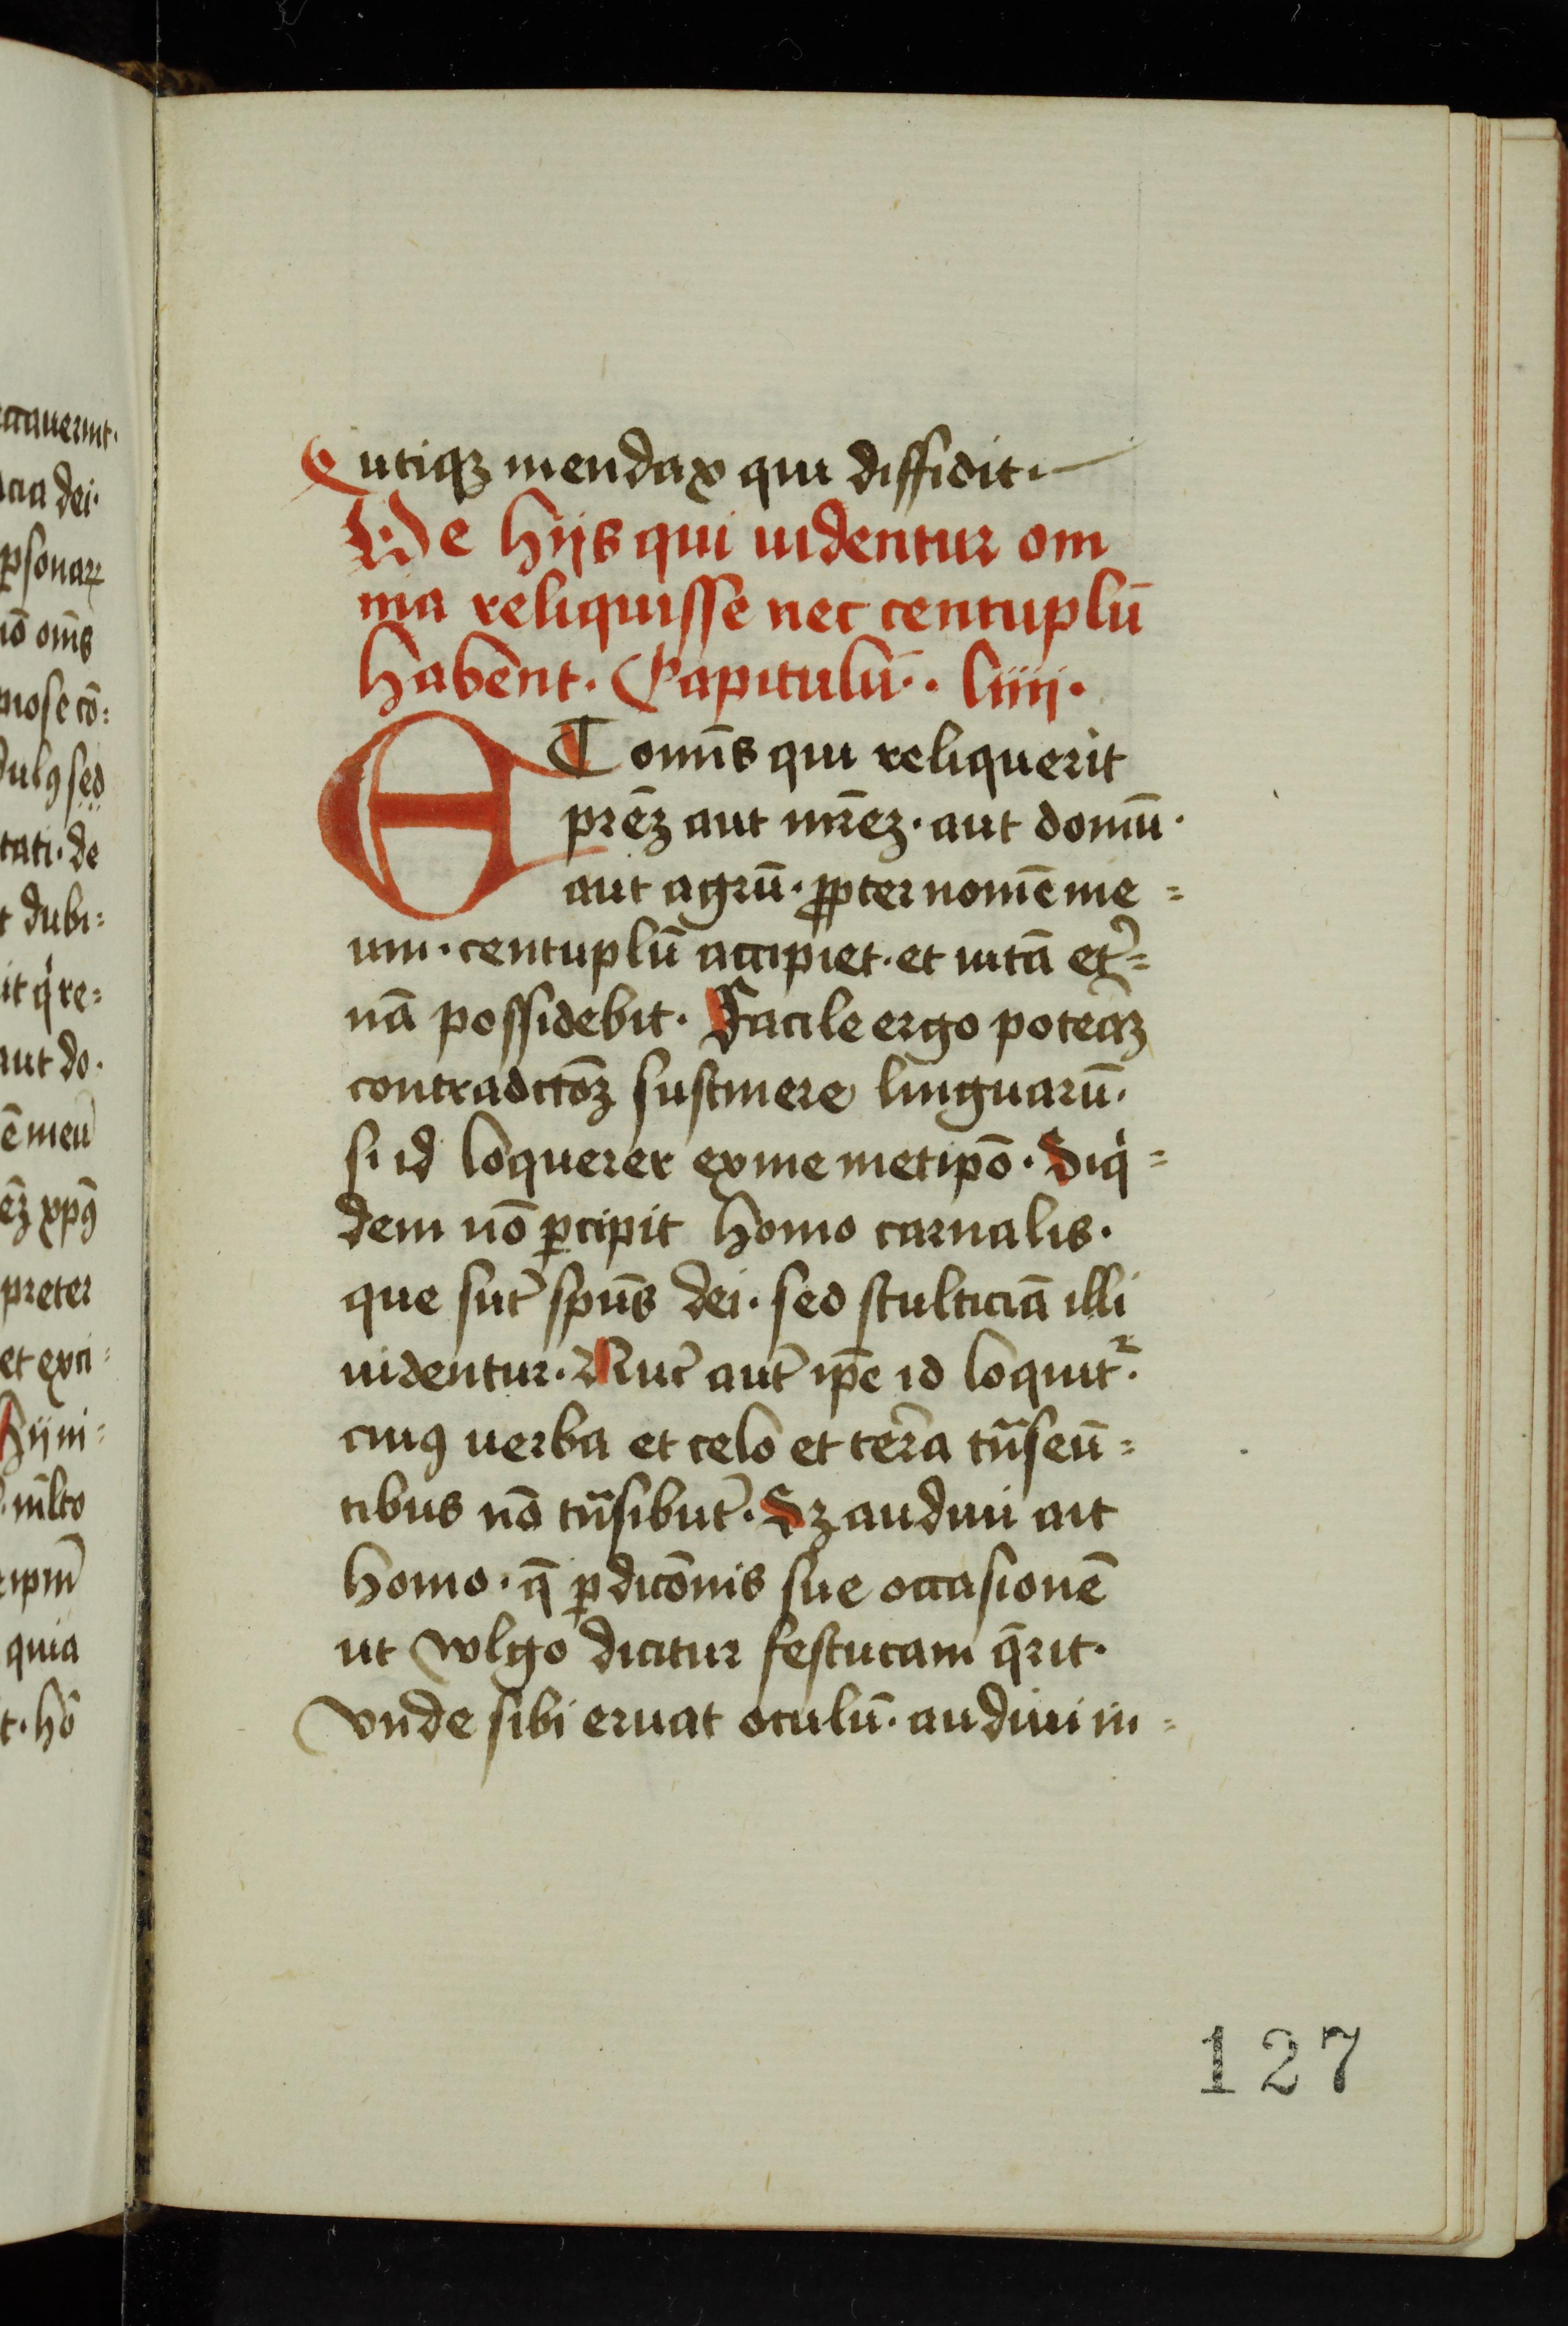 ctauerunt.
cia dei.
ꝑsonaꝝ
nō oms̄
mose cō:
dulꝰ sed
tati. de
t dubi:
it qͥ re:
aut do.
ē meū
ēꝫ xpꝰ̄
preter
et exci:
Hij ni:
mlto
ipm̄
quia
t. hō
utiqꝫ mendax qui diffidit.
De hijs qui uidentur om
nia reliquisse nec centuplū
habent. Capitulū. liiij.
ET omīs qui reliquerit
prēꝫ aut mr̄eꝫ. aut domū.
aut agrū. ꝓpter nomē me=
um. centuplū accipiet. et uitā et᷑=
nā possidebit. Facile ergo poteaꝫ
contradictōꝫ sustinere linguarū.
si id loquerer ex me metipō. Siqͥ=
dem nō ꝑcipit homo carnalis.
que sūt spūs dei. sed stulticiā illi
uidentur. Nūc aūt ipē id loquitᷣ.
cuiꝰ uerba et celo et terra trāseū=
tibus nō trāsibūt. Sꝫ audiui ait
homo. qͣ̄ ꝑdicōnis sue occasionē
ut wlgo dicitur festucam q̄rit.
vnde sibi eruat oculū. audiui in=
127